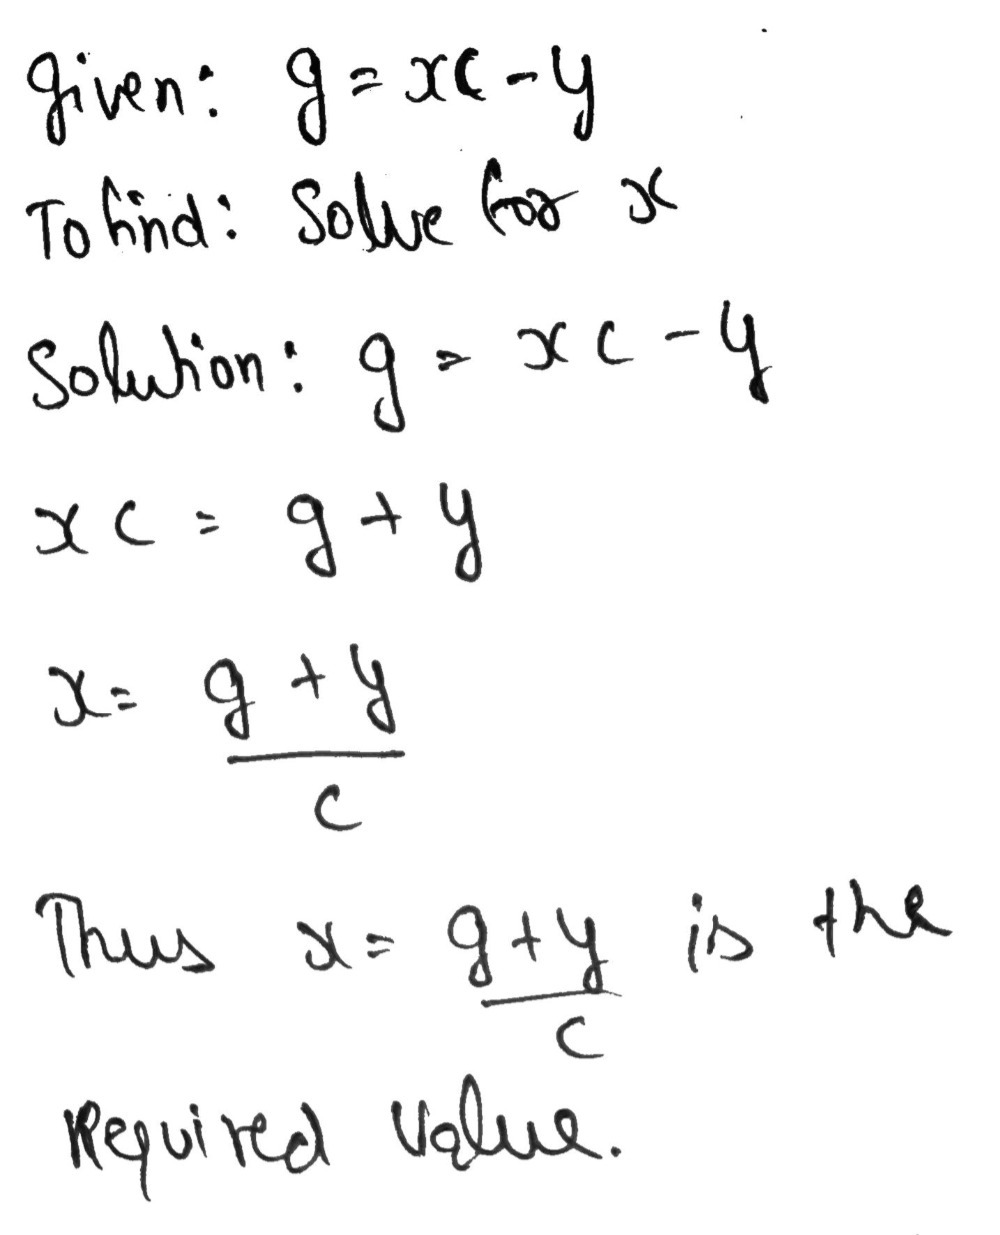 given: g = xc - y
To find: Solve for x
Solution: g = xc - y
xc = g + y
x = g + y
c
Thus x = g + y is the
c
Required value.